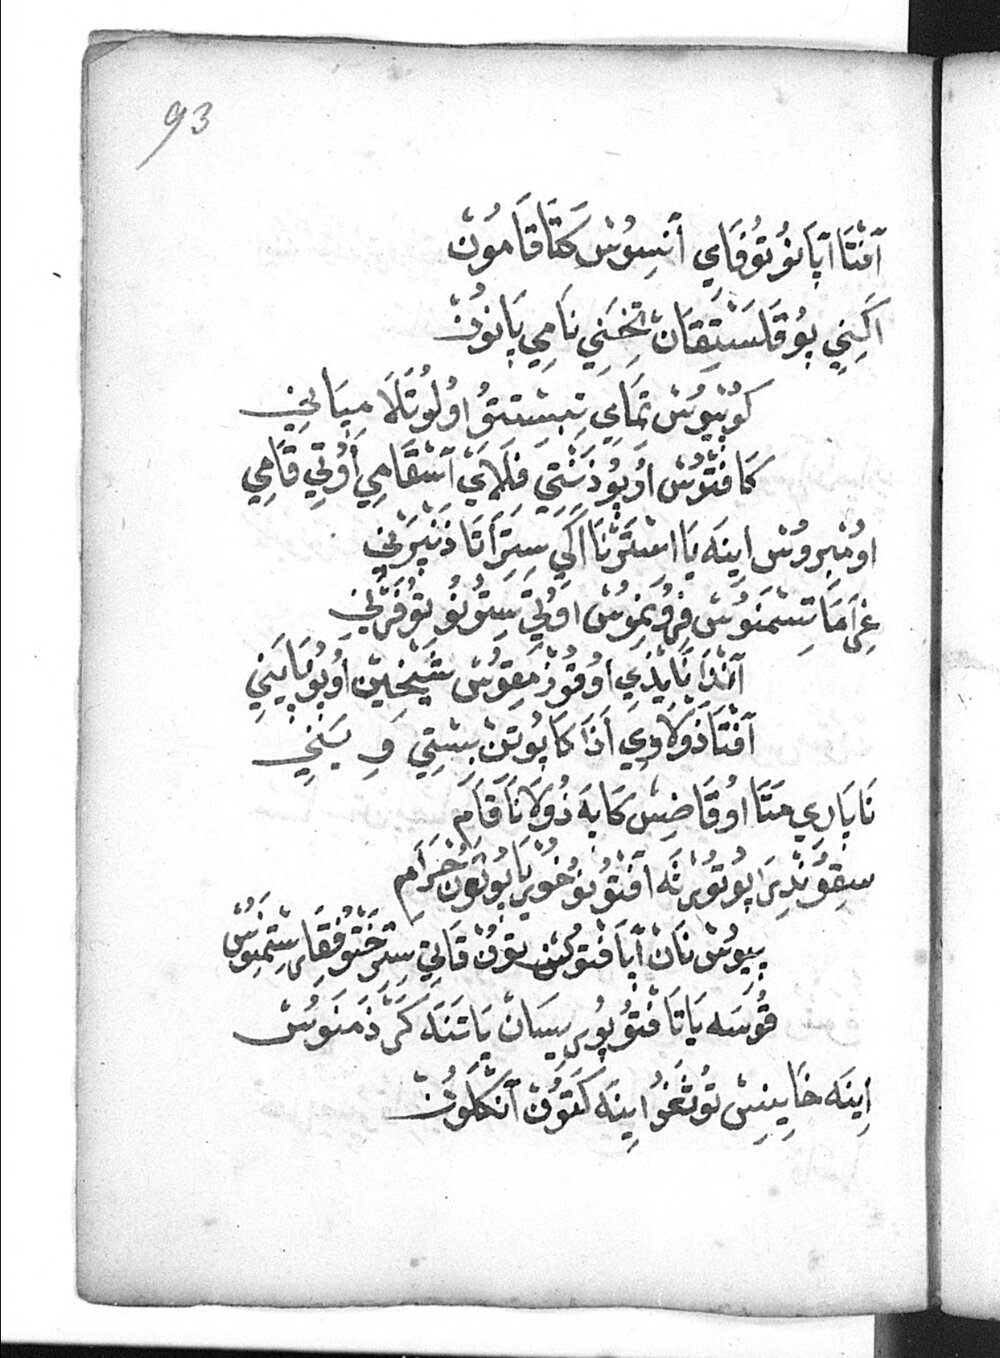 93
آفْتَا اٰپَانُو تُوفَايِ آنسِوُسْ كَتَاقَامُونْ
اَكِنِي پُو قَلَسْتِقَانْ تِخِنِي نَامِي پَانُونْ
كُوپْيُوسْ تَمَايِ تِبِسْتِتُو اوُلُوتَلَا مِيَانِي
كَافْتُوسْ اوُپُوذَشْتِي فَلَايْ آسْقَامِي اَوُتِي قَامِي
اوُمْبِرُوسْ اِينَه يَا اسْتَرْنَا اَكِي سِتِرَاَتَا ذَنْپَرْنِي
غِرَامَاتِسْمَنُوسْ فِرُونِمُوسْ اوُلِي سِتُونُو تُوفَرْنِي
آنْذَا نَاپْذِي اوُقُوذْمَقِوُسْ شَيْخِينْ اوُپُوپَايَنِي
آفْتَا ذُولَاوِي اَذَا كَاپُوتِنْ بِسْتِي وِيسَنِي
نَابَارِي مَتَا اوُقَاضِسْ كَابَه ذُولَانَاقَامِ
سِقُونْدِرَا پُوتُوپَرْنَه آفْتُونُو خُوپْرْيَا پُوتُونْ حَرَامِ
پِيُوسْ نَانْ اٰپَافْتُوكُسْ تُونْ قَاتِي سِتِرَخْتُوفِقَارِسْتِمَنُوسْ
قُوسَه يَا تَافْتُو پُورِيسَانْ يَا تَنَه كَرَذَمَنُوسْ
اِينَه خَايِينِسْ تُوثَغُو اِينَه كَقُونْ آنْكَلُونْ